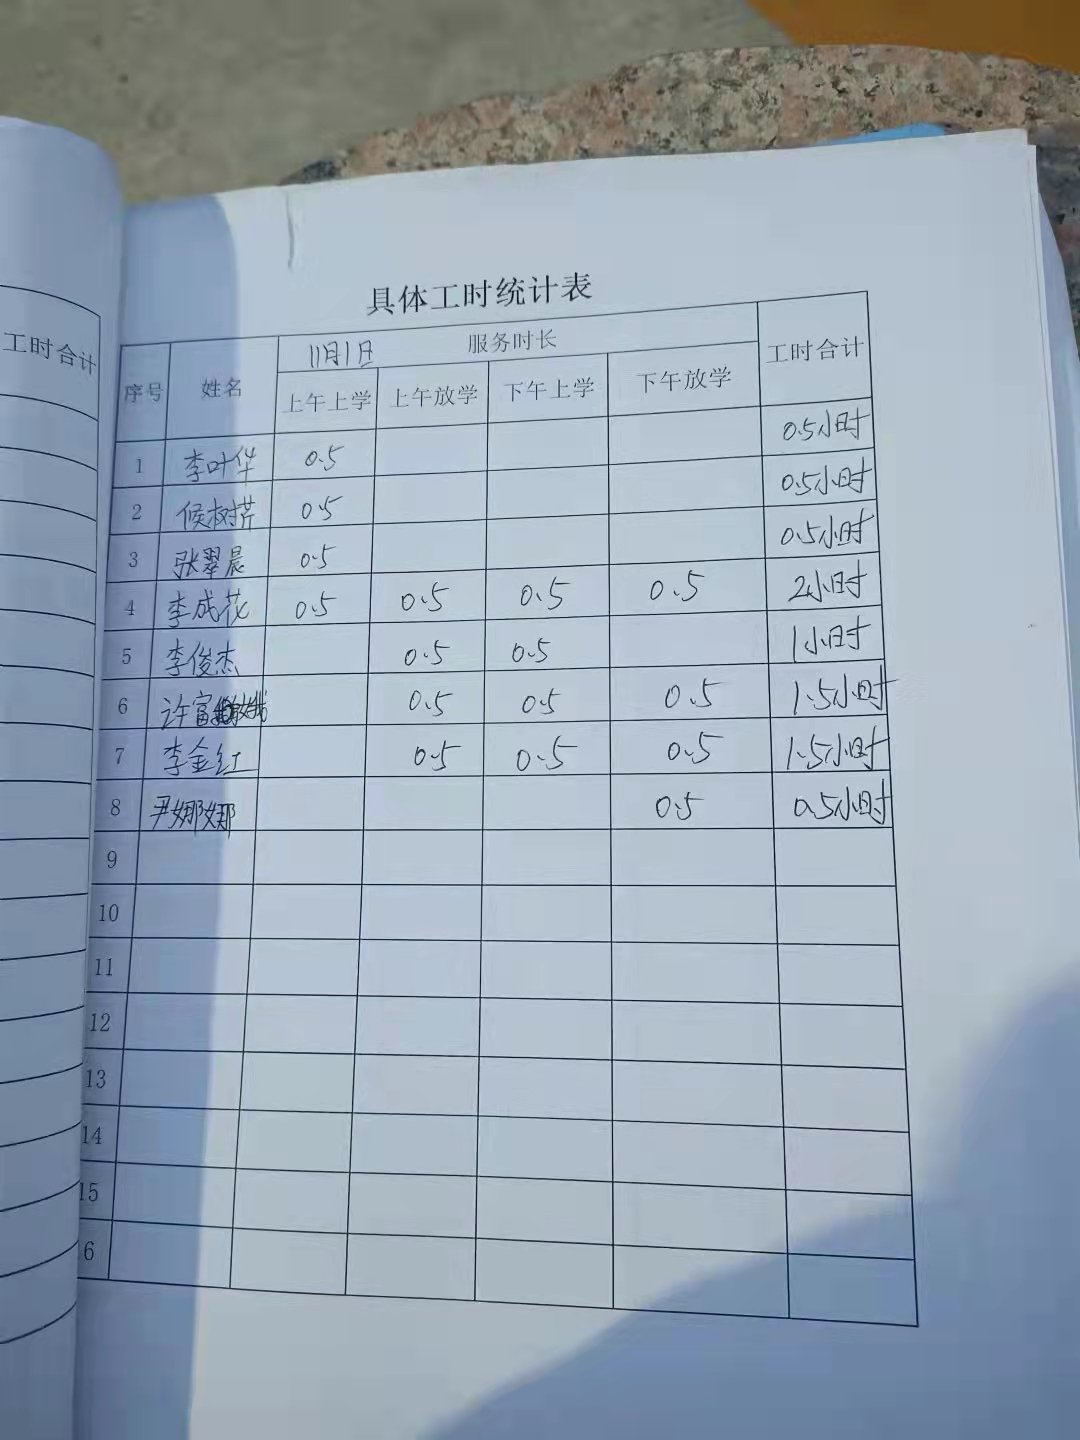 工时合计
具体工时统计表
序号 姓名 11月1日 服务时长 工时合计
上午上学 上午放学 下午上学 下午放学
1 李叶华 0.5 0.5小时
2 候树芹 0.5 0.5小时
3 张翠晨 0.5 0.5小时
4 李成花 0.5 0.5 0.5 0.5 2小时
5 李俊杰 0.5 0.5 1小时
6 许富 0.5 0.5 0.5 1.5小时
7 李金红 0.5 0.5 0.5 1.5小时
8 尹娜娜 0.5 0.5小时
9
10
11
12
13
14
15
6